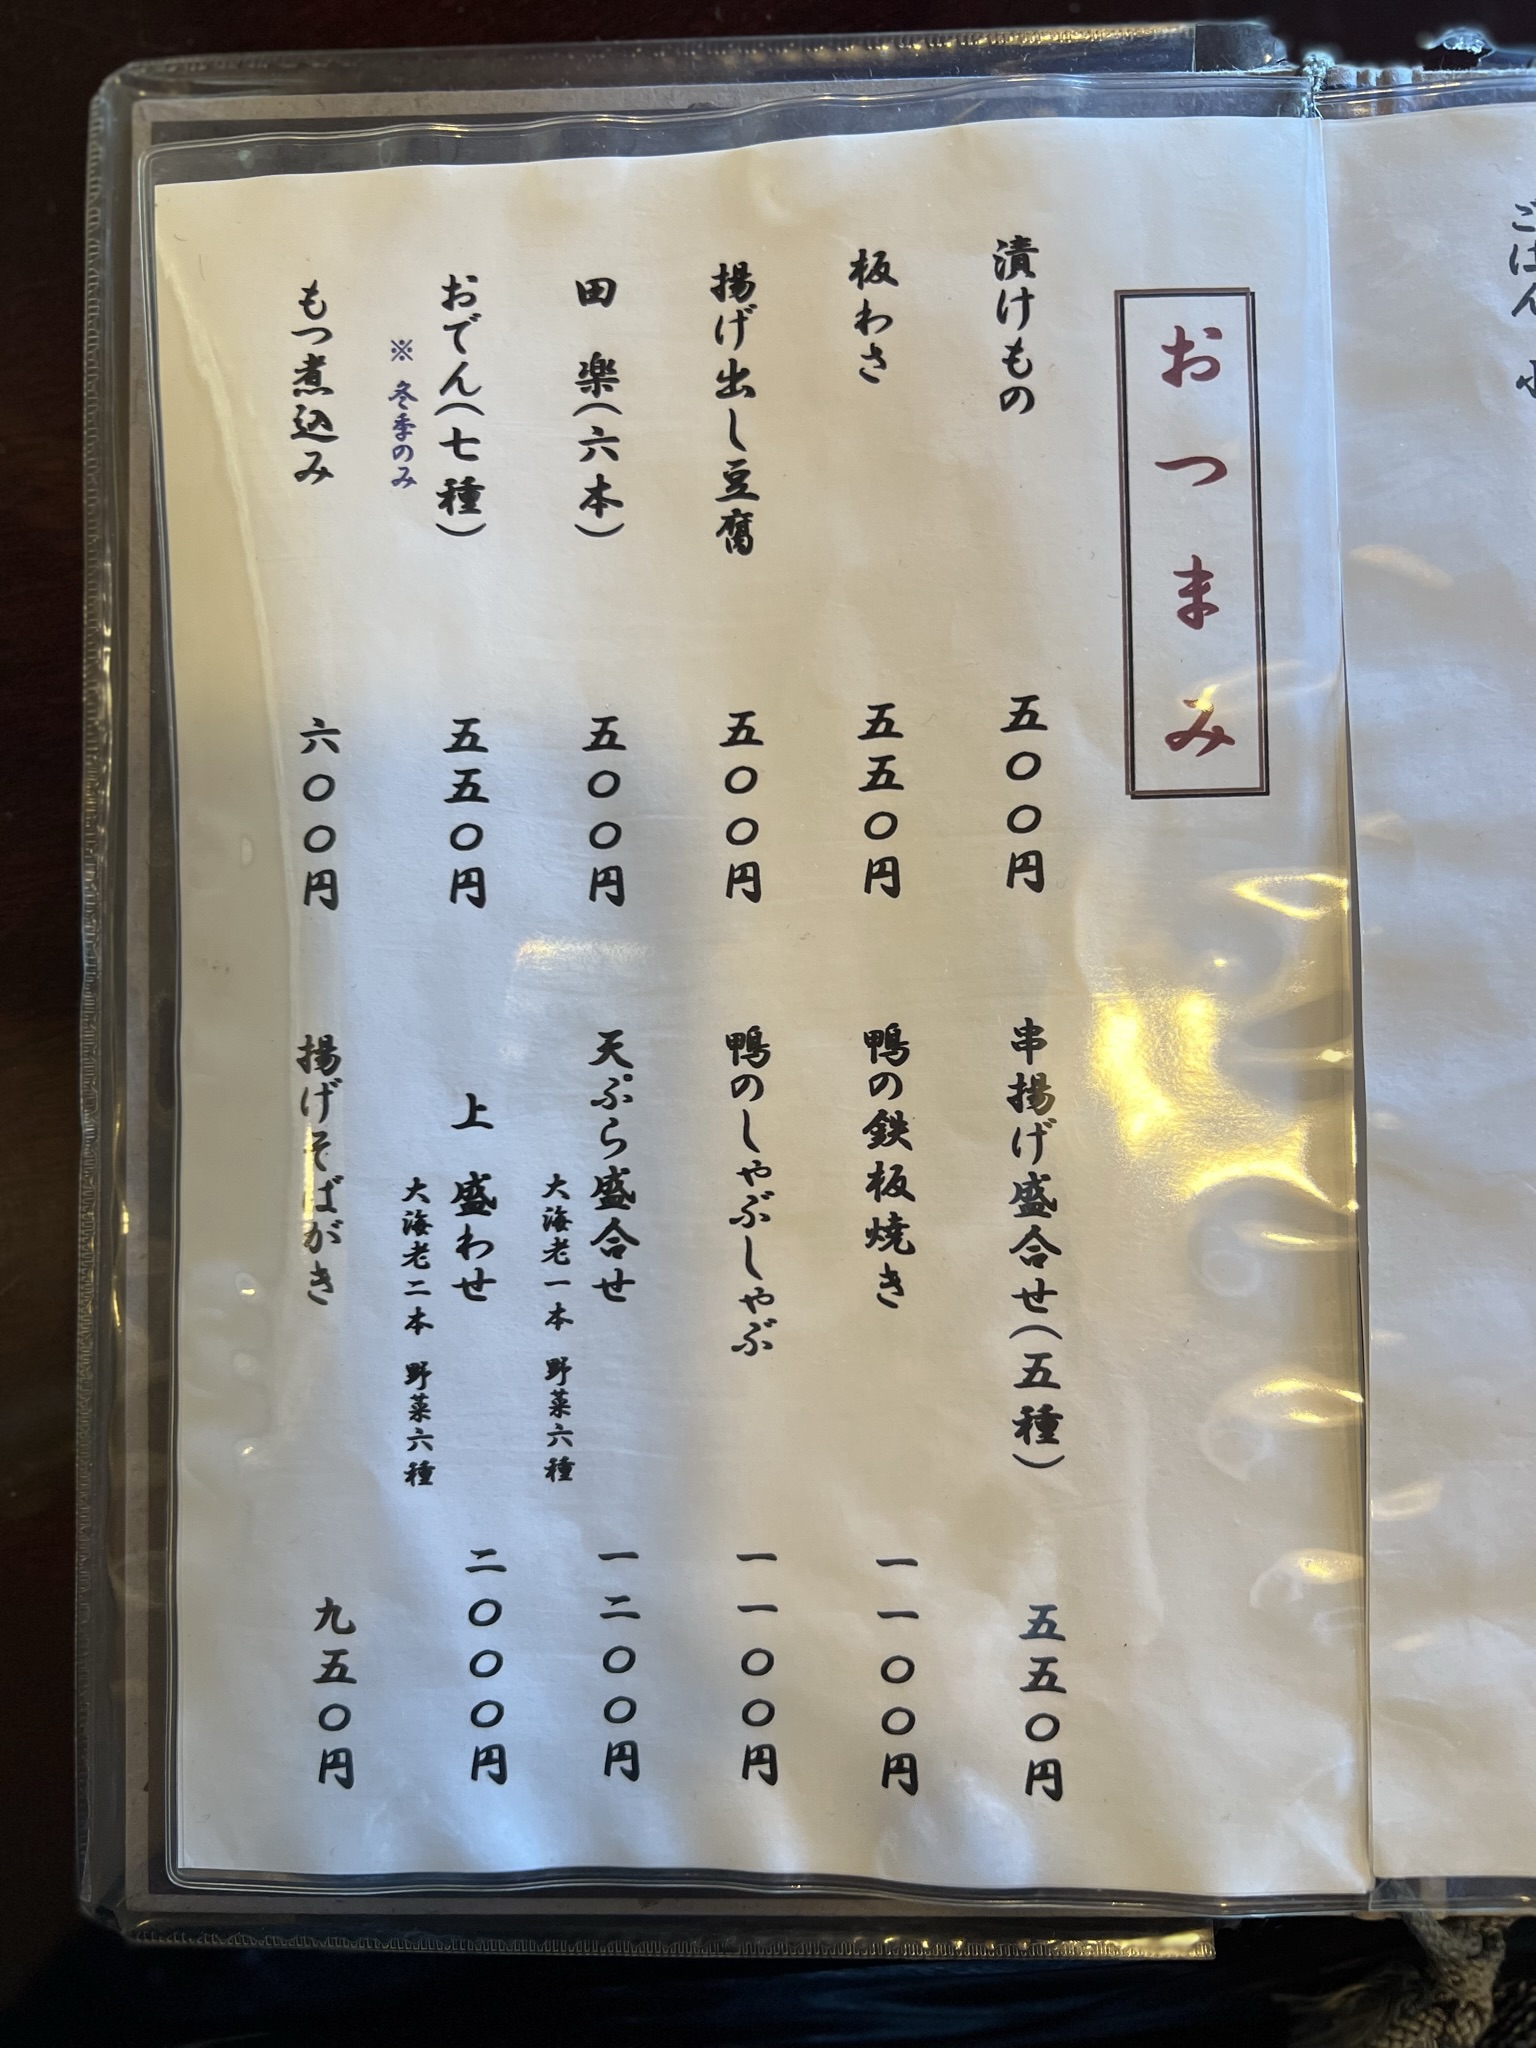 ごはん
おつまみ
漬けもの 五〇〇円
板わさ 五五〇円
揚げ出し豆腐 五〇〇円
田 楽(六本) 五〇〇円
おでん(七種) 五五〇円
※ 冬季のみ
もつ煮込み 六〇〇円
串揚げ盛合せ(五種) 五五〇円
鴨の鉄板焼き 一一〇〇円
鴨のしゃぶしゃぶ 一一〇〇円
天ぷら盛合せ 一二〇〇円
大海老一本 野菜六種
上 盛わせ 二〇〇〇円
大海老二本 野菜六種
揚げそばがき 九五〇円